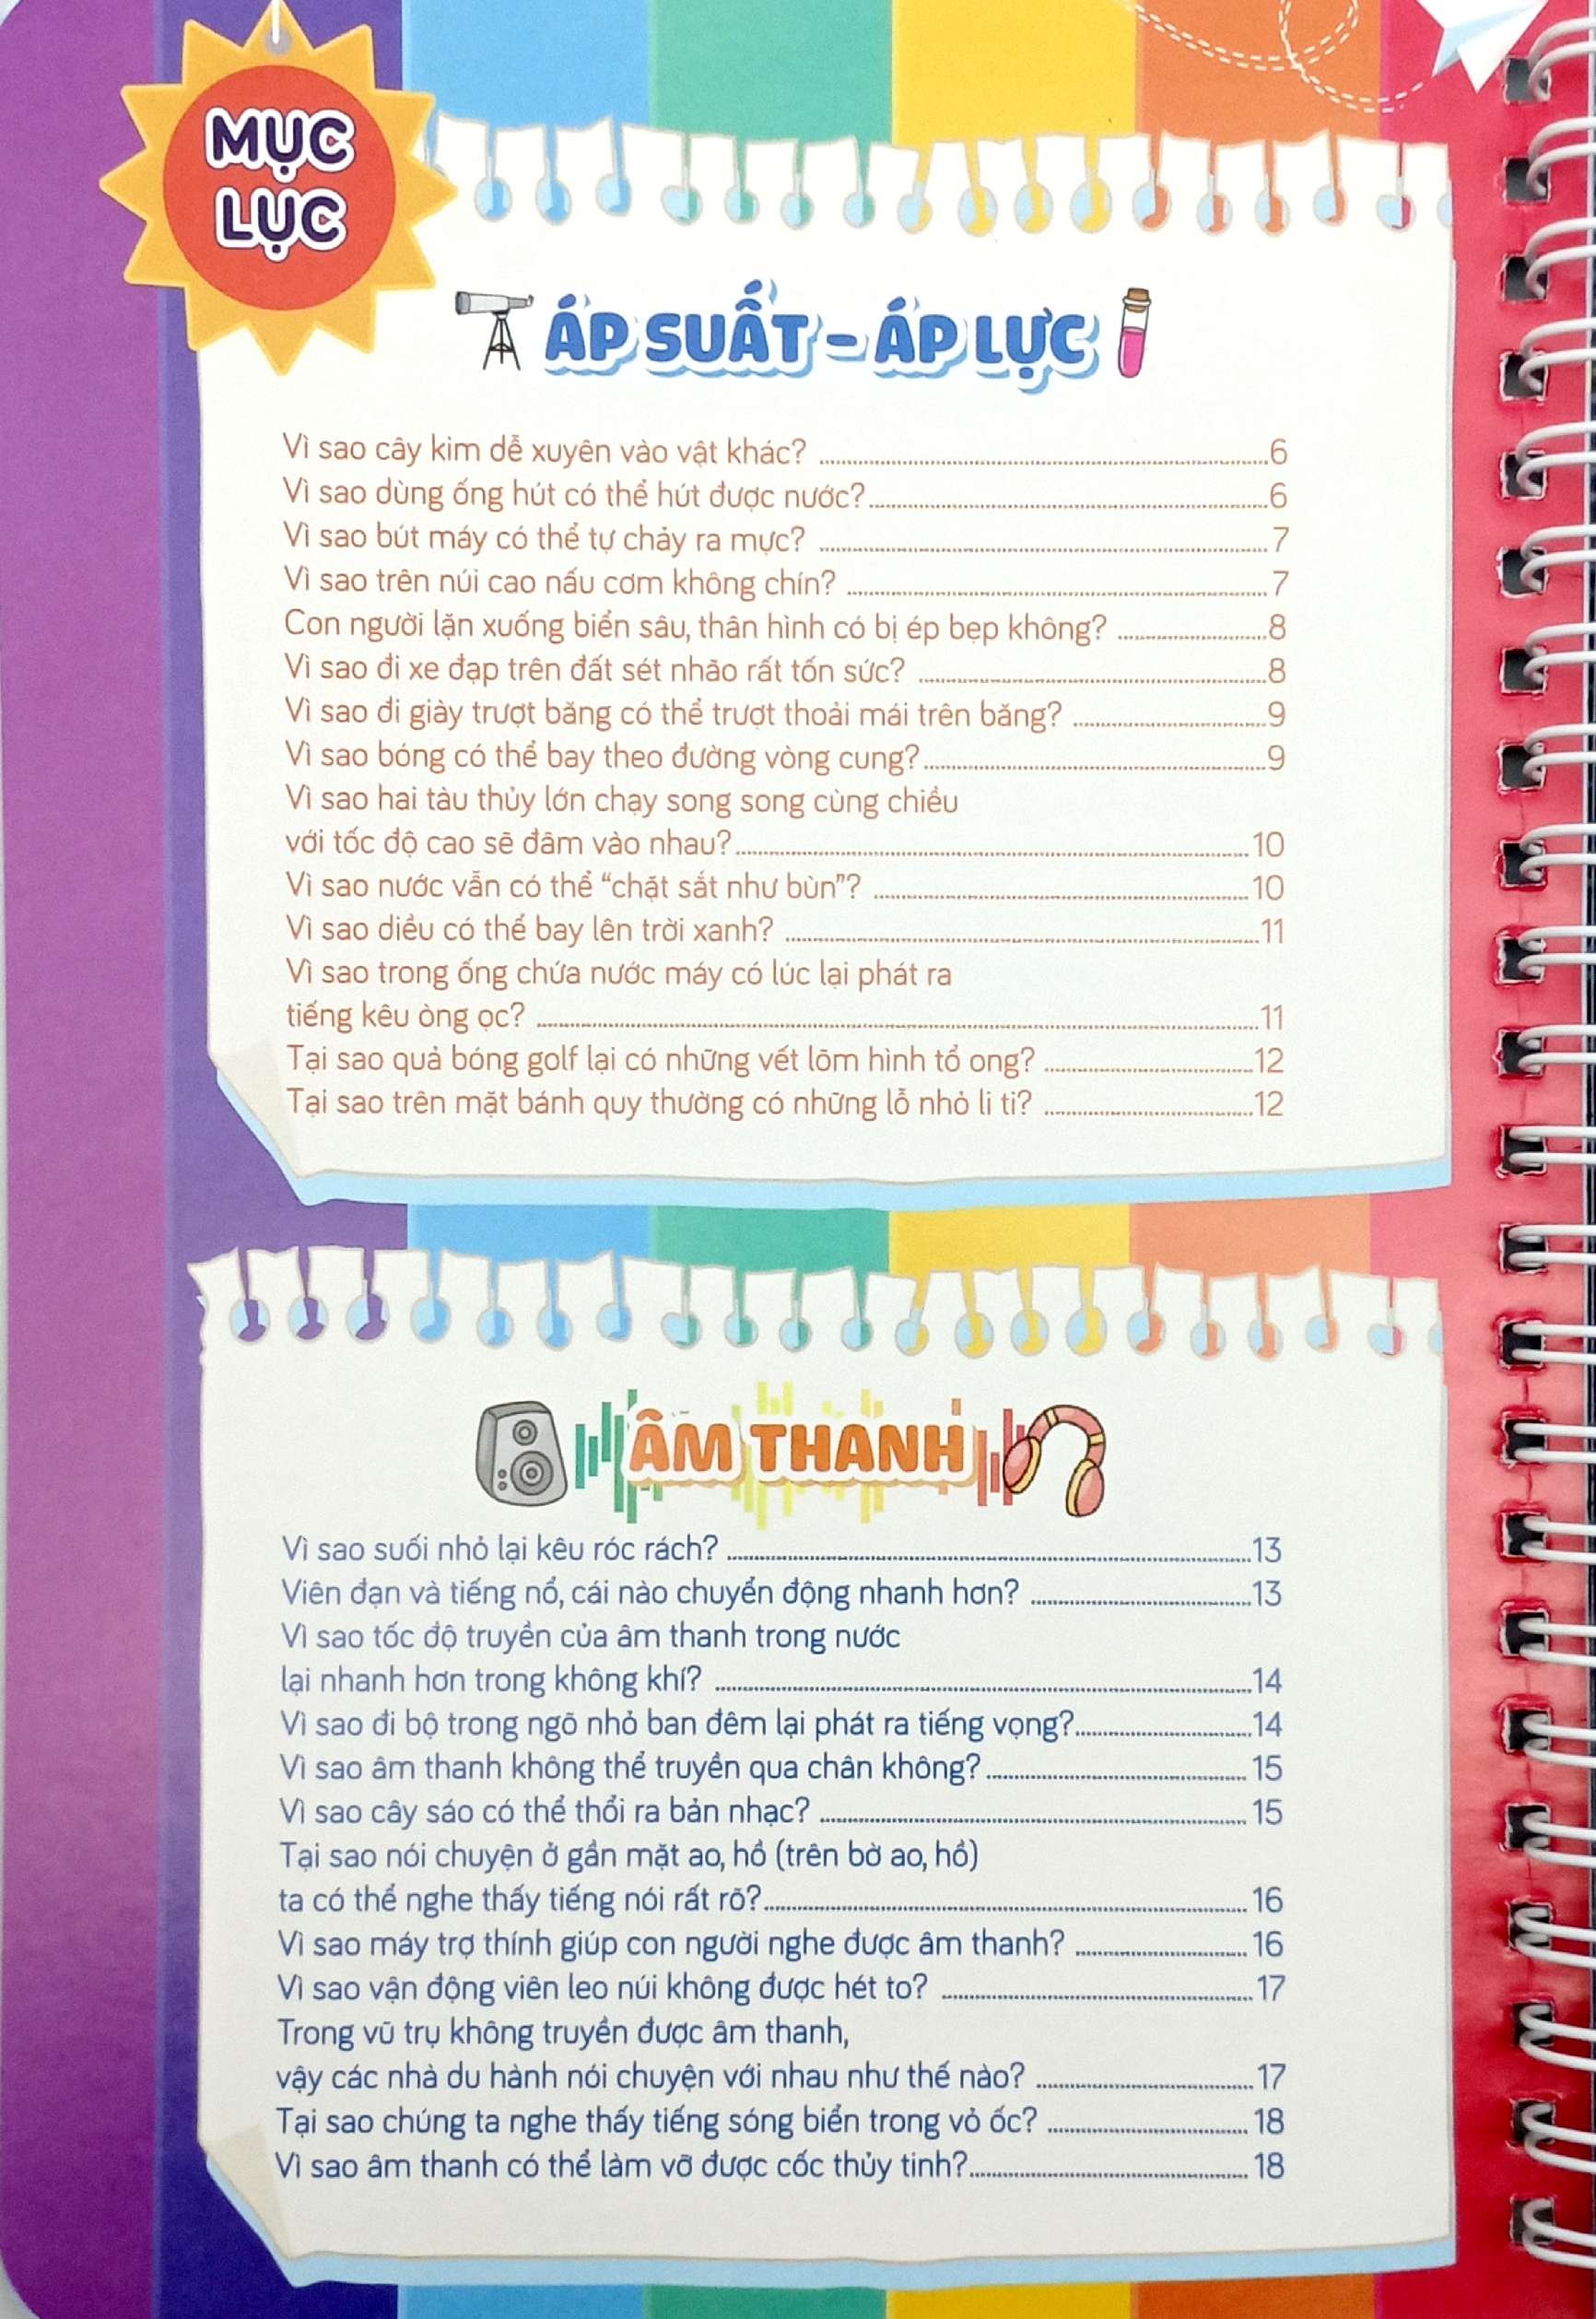 MỤC
LỤC
ÁP SUẤT - ÁP LỰC
Vì sao cây kim dễ xuyên vào vật khác? 6
Vì sao dùng ống hút có thể hút được nước? 6
Vì sao bút máy có thể tự chảy ra mực? 7
Vì sao trên núi cao nấu cơm không chín? 7
Con người lặn xuống biển sâu, thân hình có bị ép bẹp không? 8
Vì sao đi xe đạp trên đất sét nhão rất tốn sức? 8
Vì sao đi giày trượt băng có thể trượt thoải mái trên băng? 9
Vì sao bóng có thể bay theo đường vòng cung? 9
Vì sao hai tàu thủy lớn chạy song song cùng chiều
với tốc độ cao sẽ đâm vào nhau? 10
Vì sao nước vẫn có thể “chặt sắt như bùn”? 10
Vì sao diều có thể bay lên trời xanh? 11
Vì sao trong ống chứa nước máy có lúc lại phát ra
tiếng kêu òng ọc? 11
Tại sao quả bóng golf lại có những vết lõm hình tổ ong? 12
Tại sao trên mặt bánh quy thường có những lỗ nhỏ li ti? 12
ÂM THANH
Vì sao suối nhỏ lại kêu róc rách? 13
Viên đạn và tiếng nổ, cái nào chuyển động nhanh hơn? 13
Vì sao tốc độ truyền của âm thanh trong nước
lại nhanh hơn trong không khí? 14
Vì sao đi bộ trong ngõ nhỏ ban đêm lại phát ra tiếng vọng? 14
Vì sao âm thanh không thể truyền qua chân không? 15
Vì sao cây sáo có thể thổi ra bản nhạc? 15
Tại sao nói chuyện ở gần mặt ao, hồ (trên bờ ao, hồ)
ta có thể nghe thấy tiếng nói rất rõ? 16
Vì sao máy trợ thính giúp con người nghe được âm thanh? 16
Vì sao vận động viên leo núi không được hét to? 17
Trong vũ trụ không truyền được âm thanh,
vậy các nhà du hành nói chuyện với nhau như thế nào? 17
Tại sao chúng ta nghe thấy tiếng sóng biển trong vỏ ốc? 18
Vì sao âm thanh có thể làm vỡ được cốc thủy tinh? 18